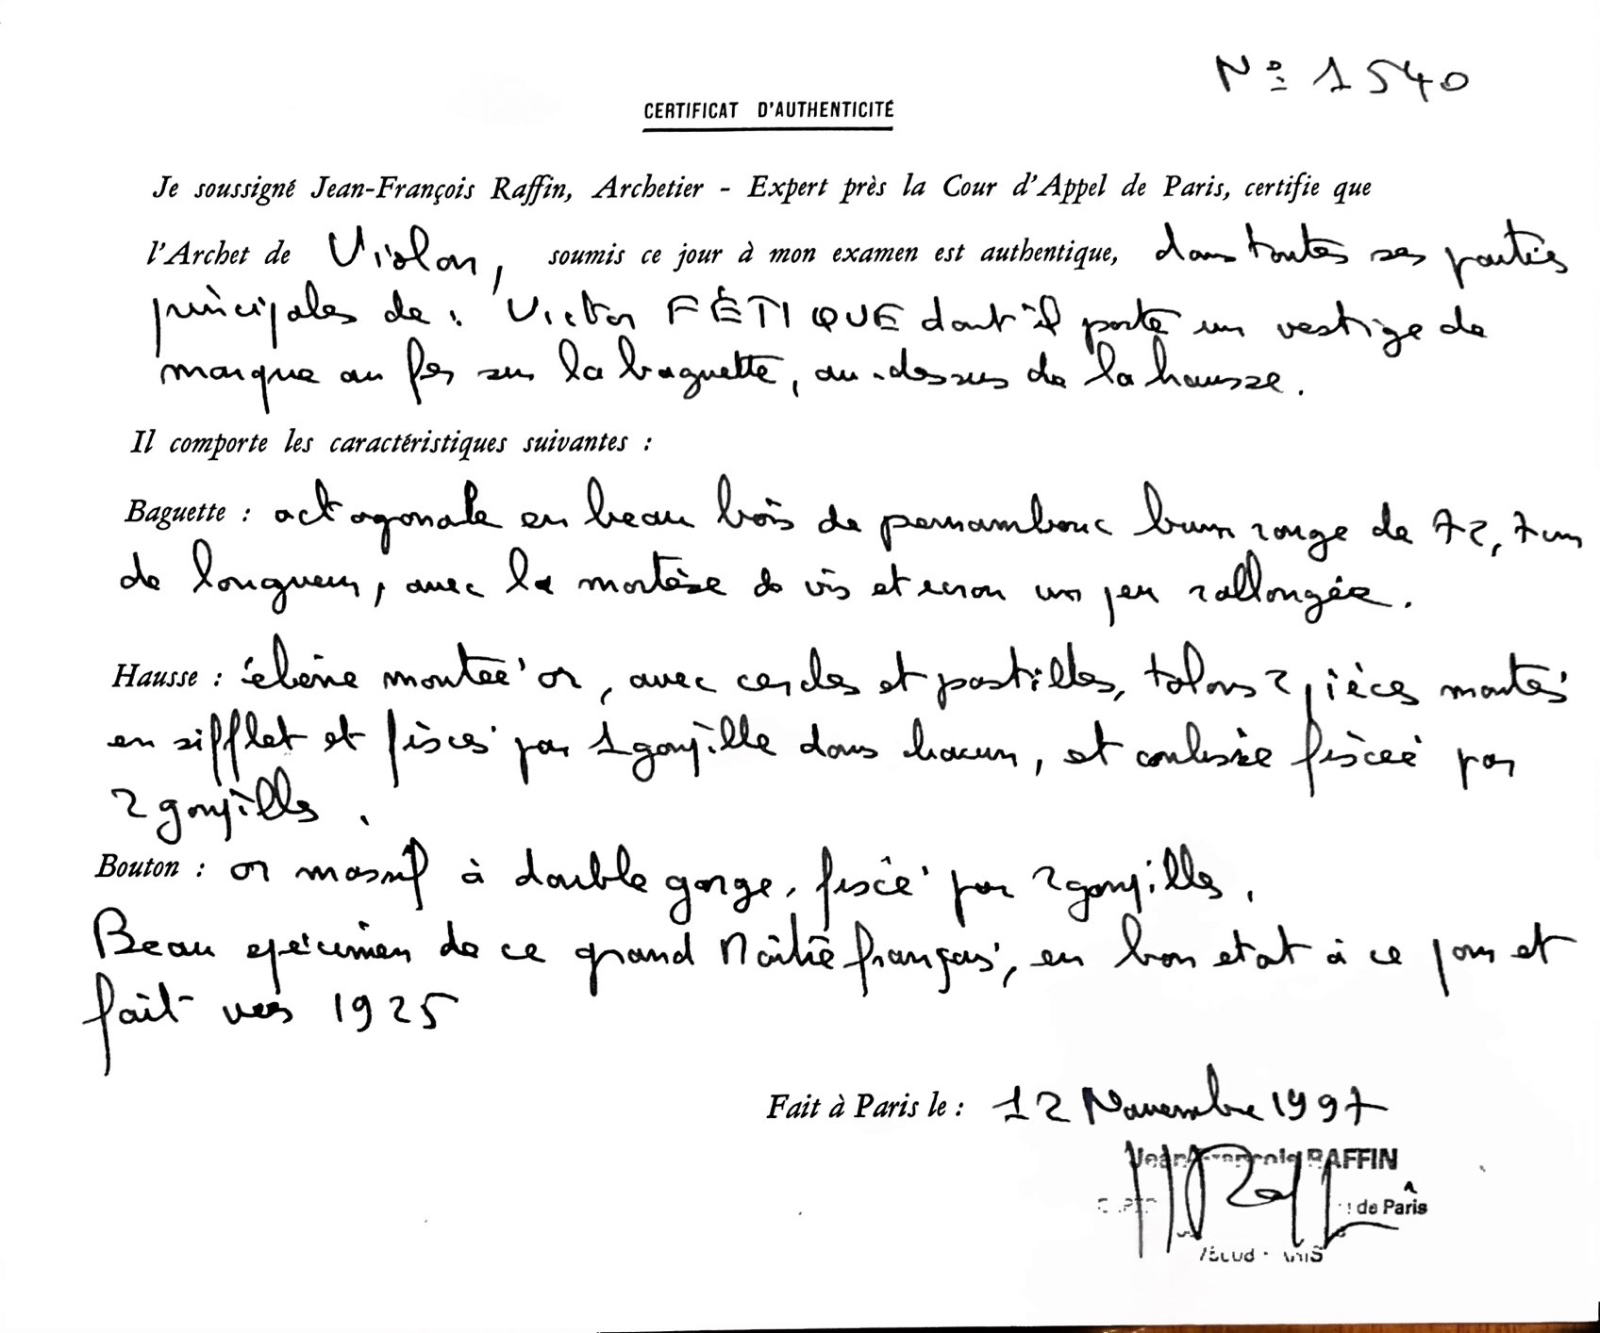 Nº 1540
CERTIFICAT D'AUTHENTICITÉ
Je soussigné Jean-François Raffin, Archetier - Expert près la Cour d'Appel de Paris, certifie que
l'Archet de Violon, soumis ce jour à mon examen est authentique, dans toutes ses parties
principales de : Victor FÉTIQUE dont il porte un vestige de
marque au fer sur la baguette, au-dessus de la hausse.
Il comporte les caractéristiques suivantes :
Baguette : octogonale en beau bois de pernambouc brun rouge de 72,7 cm
de longueur, avec la mortèse de vis et écrou un peu rallongée.
Hausse : ébène montée or, avec cercles et pastilles, talons 2 pièces montés
en sifflet et fixés par 1 goupille dans chacun, et coulisse fixée par
2 goupilles.
Bouton : or massif à double gorge, fixé par 2 goupilles.
Beau spécimen de ce grand Maître français, en bon état à ce jour et
fait vers 1925
Fait à Paris le : 12 Novembre 1997
Jean-François RAFFIN
de Paris